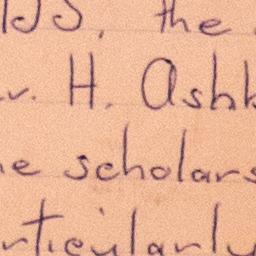 the
H. Ashb
scholars
rticularly